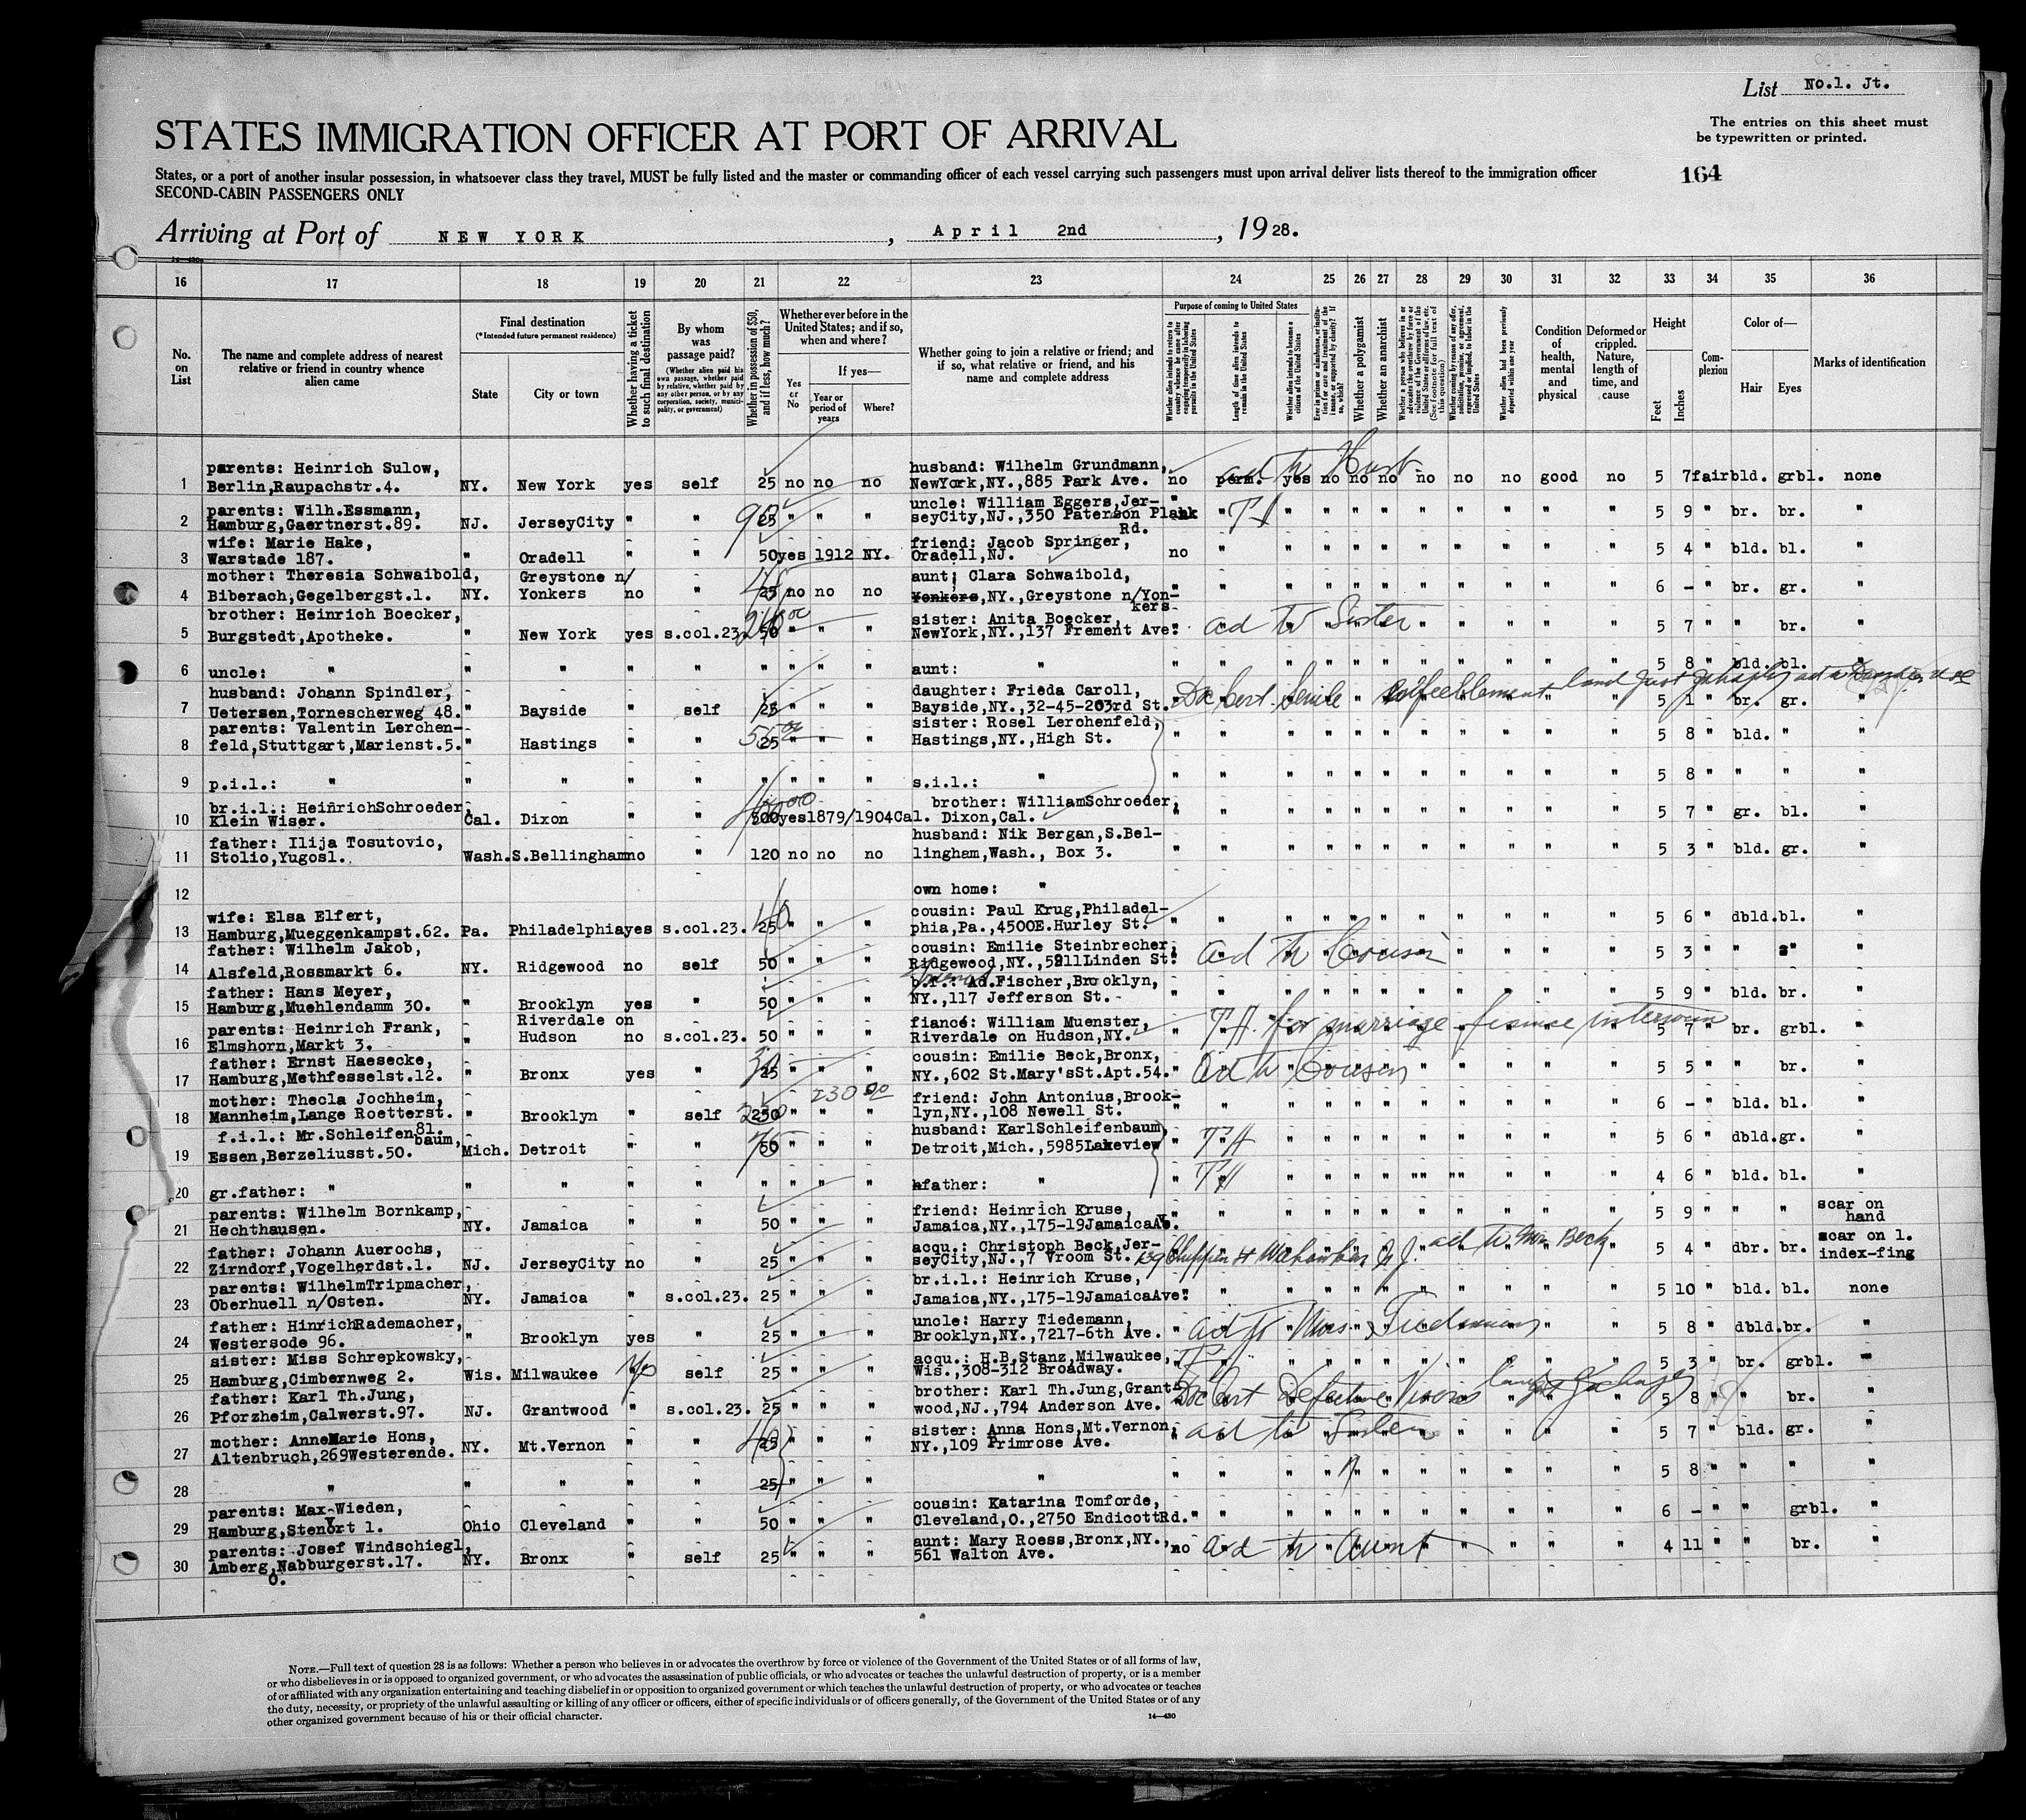 List No.1. Jt.
STATES IMMIGRATION OFFICER AT PORT OF ARRIVAL
The entries on this sheet must
be typewritten or printed.
States, or a port of another insular possession, in whatsoever class they travel, MUST be fully listed and the master or commanding officer of each vessel carrying such passengers must upon arrival deliver lists thereof to the immigration officer
SECOND-CABIN PASSENGERS ONLY
164
Arriving at Port of NEW YORK, April 2nd, 1928.
16 17 18 19 20 21 22 23 24 25 26 27 28 29 30 31 32 33 34 35 36
No. on List
The name and complete address of nearest relative or friend in country whence alien came
Final destination
(*Intended future permanent residence)
State
City or town
Whether having a ticket to such final destination
By whom was passage paid?
(Whether alien paid his own passage, whether paid by relative, whether paid by any other person, or by any corporation, society, municipality, or government)
Whether in possession of $50, and if less, how much?
Whether ever before in the United States; and if so, when and where?
Yes or No
If yes—
Year or period of years
Where?
Whether going to join a relative or friend; and if so, what relative or friend, and his name and complete address
Purpose of coming to United States
Length of time alien intends to remain in the United States
Whether alien intends to become a citizen of the United States
Whether a polygamist
Whether an anarchist
Whether alien had been previously deported within one year
Condition of health, mental and physical
Deformed or crippled. Nature, length of time, and cause
Height
Feet
Inches
Complexion
Color of—
Hair
Eyes
Marks of identification
1 parents: Heinrich Sulow, Berlin,Raupachstr.4. NY. New York yes self 25 no no no husband: Wilhelm Grundmann, NewYork,NY.,885 Park Ave. no perm. yes no no no no no no good no 5 7 fair bld. grbl. none
ad to Husb
2 parents: Wilh.Essmann, Hamburg,Gaertnerst.89. NJ. JerseyCity " " 25 " " " uncle: William Eggers,Jer-seyCity,NJ.,350 Paterson Plank Rd. " " " " " " " " " " " 5 9 " br. br. "
3 wife: Marie Hake, Warstade 187. " Oradell " " 50 yes 1912 NY. friend: Jacob Springer, Oradell,NJ. no " " " " " " " " " " 5 4 " bld. bl. "
4 mother: Theresia Schwaibold, Biberach,Gegelbergst.1. NY. Greystone n/ Yonkers no " 25 no no no aunt; Clara Schwaibold, Yonkers,NY.,Greystone n/Yon-kers " " " " " " " " " " " 6 - " br. gr. "
5 brother: Heinrich Boecker, Burgstedt,Apotheke. " New York yes s.col.23. 50 " " " sister: Anita Boecker, NewYork,NY.,137 Frement Ave. 5 7 " " br. "
ad to Sister
6 uncle: " " " " " " " " " aunt: " " " " " " " " " " " " 5 8 " bld. bl. "
7 husband: Johann Spindler, Uetersen,Tornescherweg 48. " Bayside " self 25 " " " daughter: Frieda Caroll, Bayside,NY.,32-45-203rd St. 5 1 " br. gr. "
8 parents: Valentin Lerchen-feld,Stuttgart,Marienst.5. " Hastings " " 25 " " " sister: Rosel Lerchenfeld, Hastings,NY.,High St. " " " " " " " " " " " 5 8 " bld. " "
9 p.i.l.: " " " " " " " " " s.i.l.: " " " " " " " " " " " " 5 8 " " " "
10 br.i.l.: HeinrichSchroeder, Klein Wiser. Cal. Dixon " " 500 yes 1879/1904 Cal. brother: WilliamSchroeder, Dixon,Cal. " " " " " " " " " " " 5 7 " gr. bl. "
11 father: Ilija Tosutovic, Stolio,Yugosl. Wash. S.Bellingham no " 120 no no no husband: Nik Bergan,S.Bel-lingham,Wash., Box 3. " " " " " " " " " " " 5 3 " bld. gr. "
12 own home: "
13 wife: Elsa Elfert, Hamburg,Mueggenkampst.62. Pa. Philadelphia yes s.col.23. 25 " " " cousin: Paul Krug,Philadel-phia,Pa.,4500E.Hurley St. " " " " " " " " " " " 5 6 " dbld. bl. "
14 father: Wilhelm Jakob, Alsfeld,Rossmarkt 6. NY. Ridgewood no self 50 " " " cousin: Emilie Steinbrecher, Ridgewood,NY.,5911Linden St. 5 3 " " " "
ad to Cousin
15 father: Hans Meyer, Hamburg,Muehlendamm 30. " Brooklyn yes " 50 " " " Ad.Fischer,Brooklyn, NY.,117 Jefferson St. " " " " " " " " " " " 5 9 " bld. br. "
16 parents: Heinrich Frank, Elmshorn,Markt 3. " Riverdale on Hudson no s.col.23. 50 " " " fiancé: William Muenster, Riverdale on Hudson,NY. 5 7 " br. grbl. "
for marriage
17 father: Ernst Haesecke, Hamburg,Methfesselst.12. " Bronx yes " 25 " " " cousin: Emilie Beck,Bronx, NY.,602 St.Mary'sSt.Apt.54. 5 5 " " br. "
ad to Cousin
18 mother: Thecla Jochheim, Mannheim,Lange Roetterst. 81. " Brooklyn " self 250 " " " friend: John Antonius,Brook-lyn,NY.,108 Newell St. " " " " " " " " " " " 6 - " bld. bl. "
19 f.i.l.: Mr.Schleifenbaum, Essen,Berzeliusst.50. Mich. Detroit " " 50 " " " husband: KarlSchleifenbaum, Detroit,Mich.,5985Lakeview " " " " " " " " " " " 5 6 " dbld. gr. "
20 gr.father: " " " " " " " " " father: " " " " " " " " " " " " 4 6 " bld. bl. "
21 parents: Wilhelm Bornkamp, Hechthausen. NY. Jamaica " " 50 " " " friend: Heinrich Kruse, Jamaica,NY.,175-19JamaicaAv. " " " " " " " " " " " 5 9 " " " scar on hand
22 father: Johann Auerochs, Zirndorf,Vogelherdst.1. NJ. JerseyCity no " 25 " " " acqu.: Christoph Beck,Jer-seyCity,NJ.,7 Vroom St. 5 4 " dbr. br. scar on l. index-fing
ad to Mr Beck
23 parents: WilhelmTripmacher, Oberhuell n/Osten. NY. Jamaica " s.col.23. 25 " " " br.i.l.: Heinrich Kruse, Jamaica,NY.,175-19JamaicaAve. " " " " " " " " " " " 5 10 " bld. bl. none
24 father: HinrichRademacher, Westersode 96. " Brooklyn yes " 25 " " " uncle: Harry Tiedemann, Brooklyn,NY.,7217-6th Ave. 5 8 " dbld. br. "
25 sister: Miss Schrepkowsky, Hamburg,Cimbernweg 2. Wis. Milwaukee self 25 " " " acqu.: H.B.Stanz,Milwaukee, Wis.,308-312 Broadway. " " " " " " " " " " 5 3 " br. grbl. "
26 father: Karl Th.Jung, Pforzheim,Calwerst.97. NJ. Grantwood " s.col.23. 25 " " " brother: Karl Th.Jung,Grant-wood,NJ.,794 Anderson Ave. 5 8 " " br. "
Defective Vision
27 mother: AnneMarie Hons, Altenbruch,269Westerende. NY. Mt.Vernon " " 25 " " " sister: Anna Hons,Mt.Vernon, NY.,109 Primrose Ave. 5 7 " bld. gr. "
ad to Sister
28 " " " " " 25 " " " " " " " " " " " " " " 5 8 " " " "
29 parents: Max Wieden, Hamburg,Stenvort 1. Ohio Cleveland " " 50 " " " cousin: Katarina Tomforde, Cleveland,O.,2750 EndicottRd. " " " " " " " " " " " 6 - " " grbl. "
30 parents: Josef Windschiegl, Amberg,Nabburgerst.17. O. NY. Bronx " self 25 " " " aunt: Mary Roess,Bronx,NY., 561 Walton Ave. no 4 11 " " br. "
ad to Aunt
NOTE.—Full text of question 28 is as follows: Whether a person who believes in or advocates the overthrow by force or violence of the Government of the United States or of all forms of law,
or who disbelieves in or is opposed to organized government, or who advocates the assassination of public officials, or who advocates or teaches the unlawful destruction of property, or is a member
of or affiliated with any organization entertaining and teaching disbelief in or opposition to organized government or which teaches the unlawful destruction of property, or who advocates or teaches
the duty, necessity, or propriety of the unlawful assaulting or killing of any officer or officers, either of specific individuals or of officers generally, of the Government of the United States or of any
other organized government because of his or their official character.
14—430